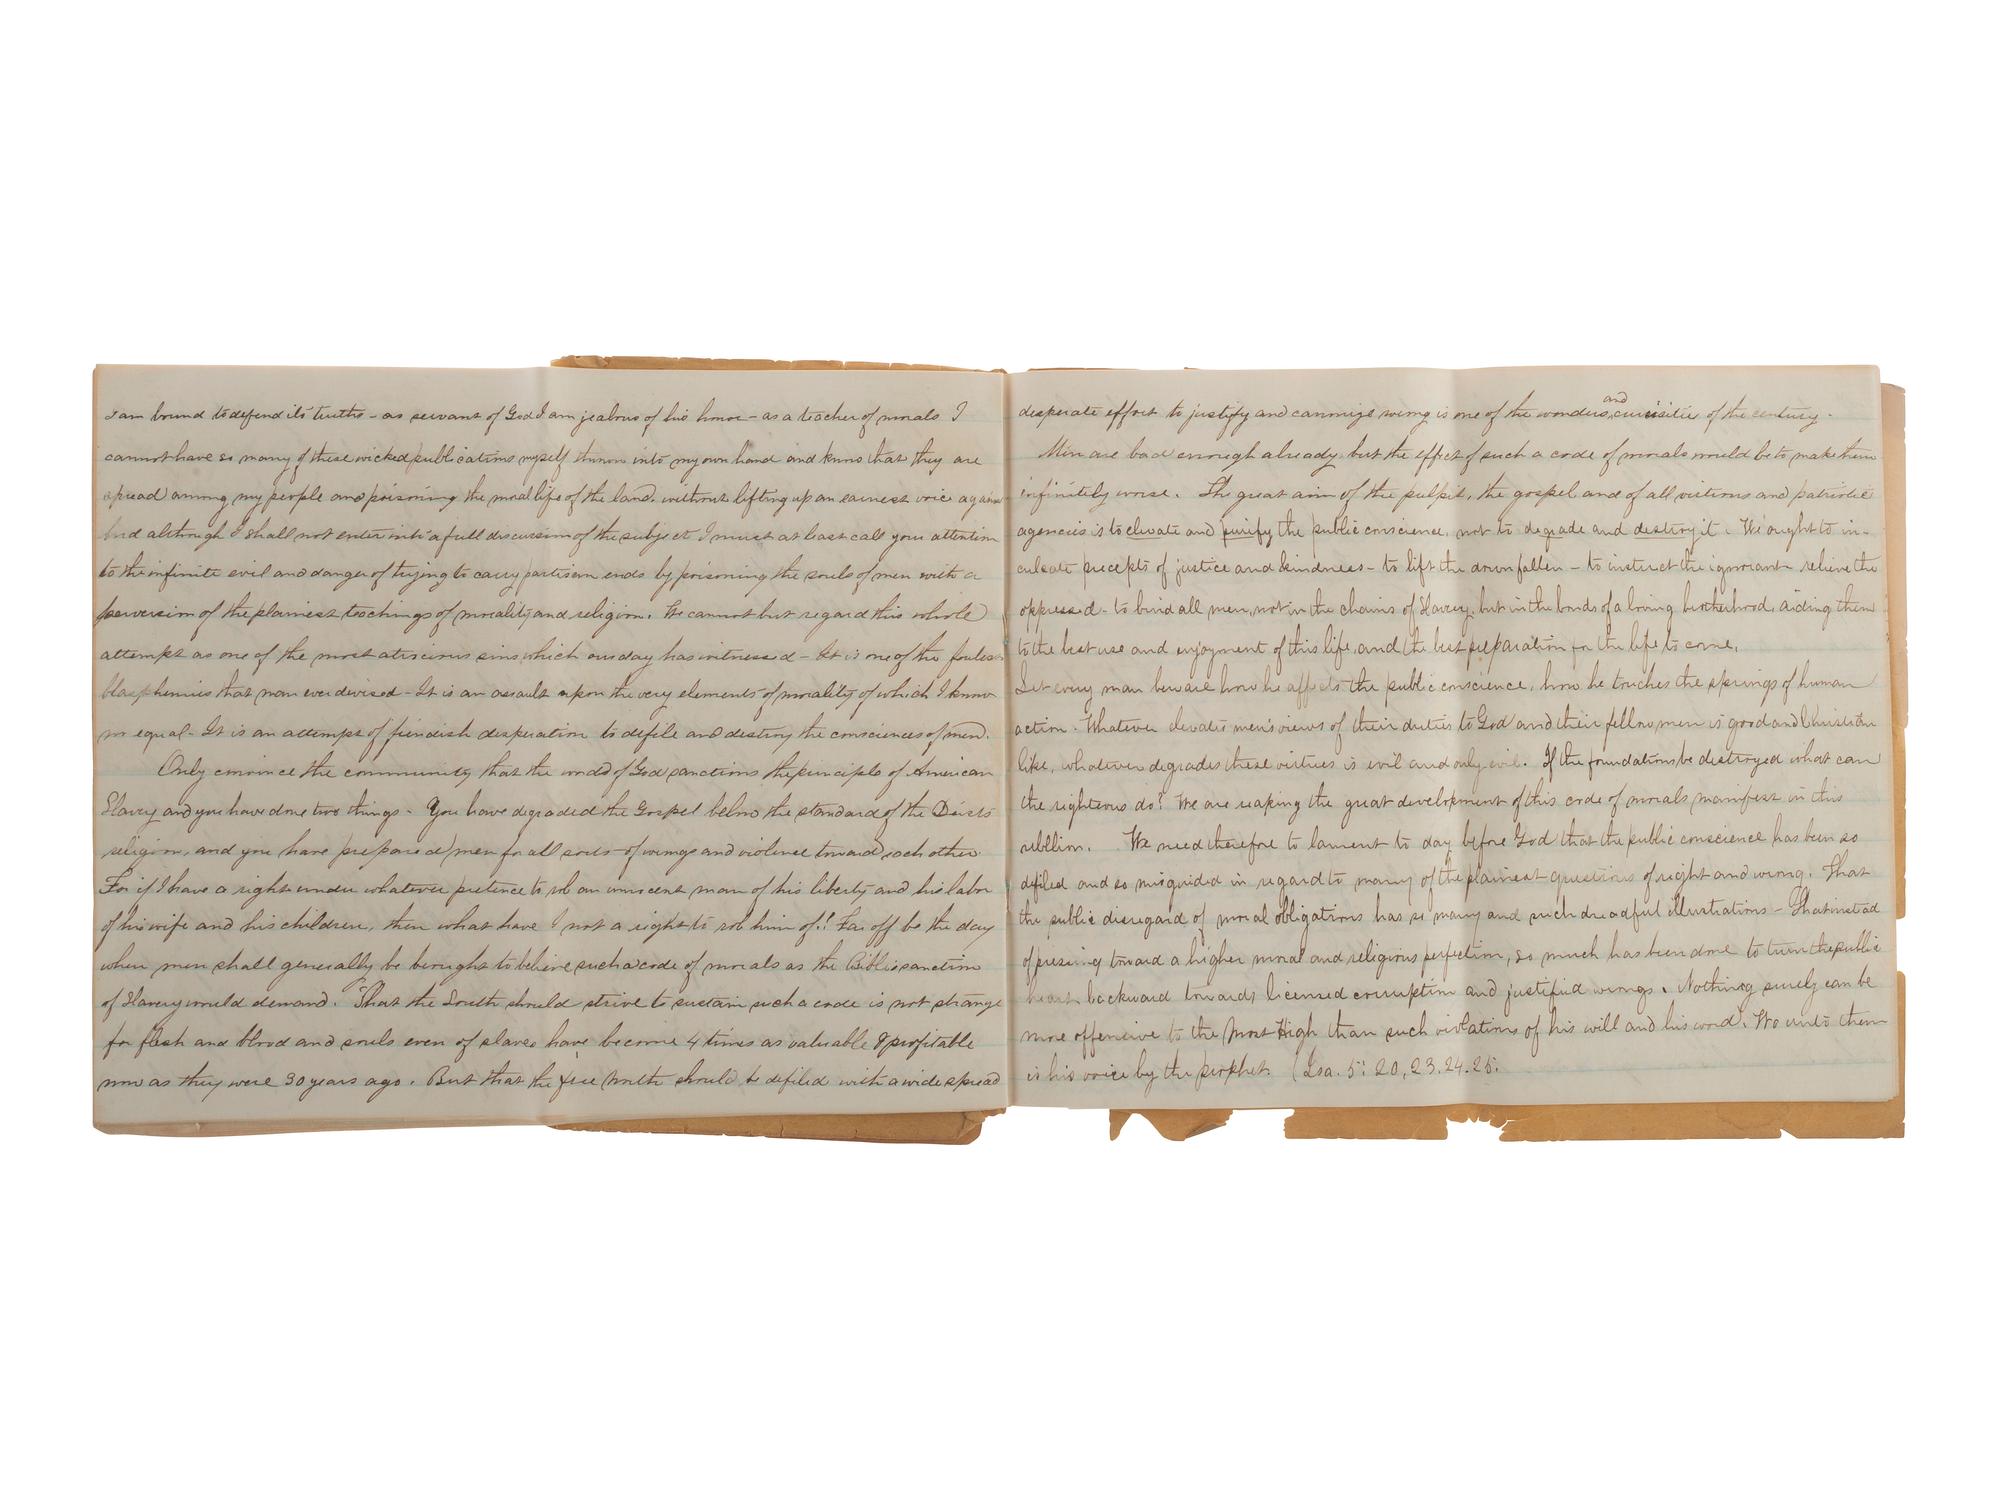 I am bound to defend its truths - as servant of God I am jealous of his honor - as a teacher of morals I
cannot have so many of these wicked publications myself thrown into my own hand and know that they are
spread among my people and poisoning the moral life of the land, without lifting up an earnest voice against
and although I shall not enter into a full discussion of the subject I must at least call your attention
to the infinite evil and danger of trying to carry partisan ends by poisoning the souls of men with a
perversion of the plainest teachings of morality and religion. We cannot but regard this whole
attempt as one of the most atrocious sins which our day has witnessed - It is one of the foulest
blasphemies that man ever devised - It is an assault upon the very elements of morality of which I know
no equal - It is an attempt of fiendish desperation to defile and destroy the consciences of men.
Only convince the community that the word of God sanctions the principle of American
Slavery and you have done two things - You have degraded the Gospel below the standard of the Deists
religion, and you have prepared men for all sorts of wrongs and violence toward each other
For if I have a right under whatever pretence to rob an innocent man of his liberty and his labor
of his wife and his children, then what have I not a right to rob him of!! Far off be the day
when men shall generally be brought to believe such a code of morals as the Bible sanction
of Slavery would demand. That the South should strive to sustain such a code is not strange
for flesh and blood and souls even of slaves have become 4 times as valuable & profitable
now as they were 30 years ago. But that the free North should be defiled with a wide spread
desperate effort to justify and canonize wrong is one of the wonders and curiosities of the century.
Men are bad enough already, but the effect of such a code of morals would be to make them
infinitely worse. The great aim of the pulpit, the gospel and of all virtuous and patriotic
agencies is to elevate and purify the public conscience, not to degrade and destroy it. We ought to in-
culcate precepts of justice and kindness - to lift the downfallen - to instruct the ignorant relieve the
oppressed - to bind all men, not in the chains of Slavery, but in the bonds of a loving brotherhood, aiding them
to the best use and enjoyment of this life, and the best preparation for the life to come.
Let every man beware how he affects the public conscience, how he touches the springs of human
action. Whatever elevates men's views of their duties to God and their fellow men is good and Christian
like, whatever degrades these virtues is evil and only evil. If the foundations be destroyed what can
the righteous do? We are reaping the great development of this code of morals manifest in this
rebellion. We need therefore to lament to day before God that the public conscience has been so
defiled and so misguided in regard to many of the plainest questions of right and wrong. That
the public disregard of moral obligations has so many and such dreadful illustrations - That instead
of pressing toward a higher moral and religious perfection, so much has been done to turn the public
heart backward towards licensed corruption and justified wrongs. Nothing surely can be
more offensive to the Most High than such violations of his will and his word. Wo unto them
is his voice by the prophet. (Isa. 5: 20, 23. 24. 25.